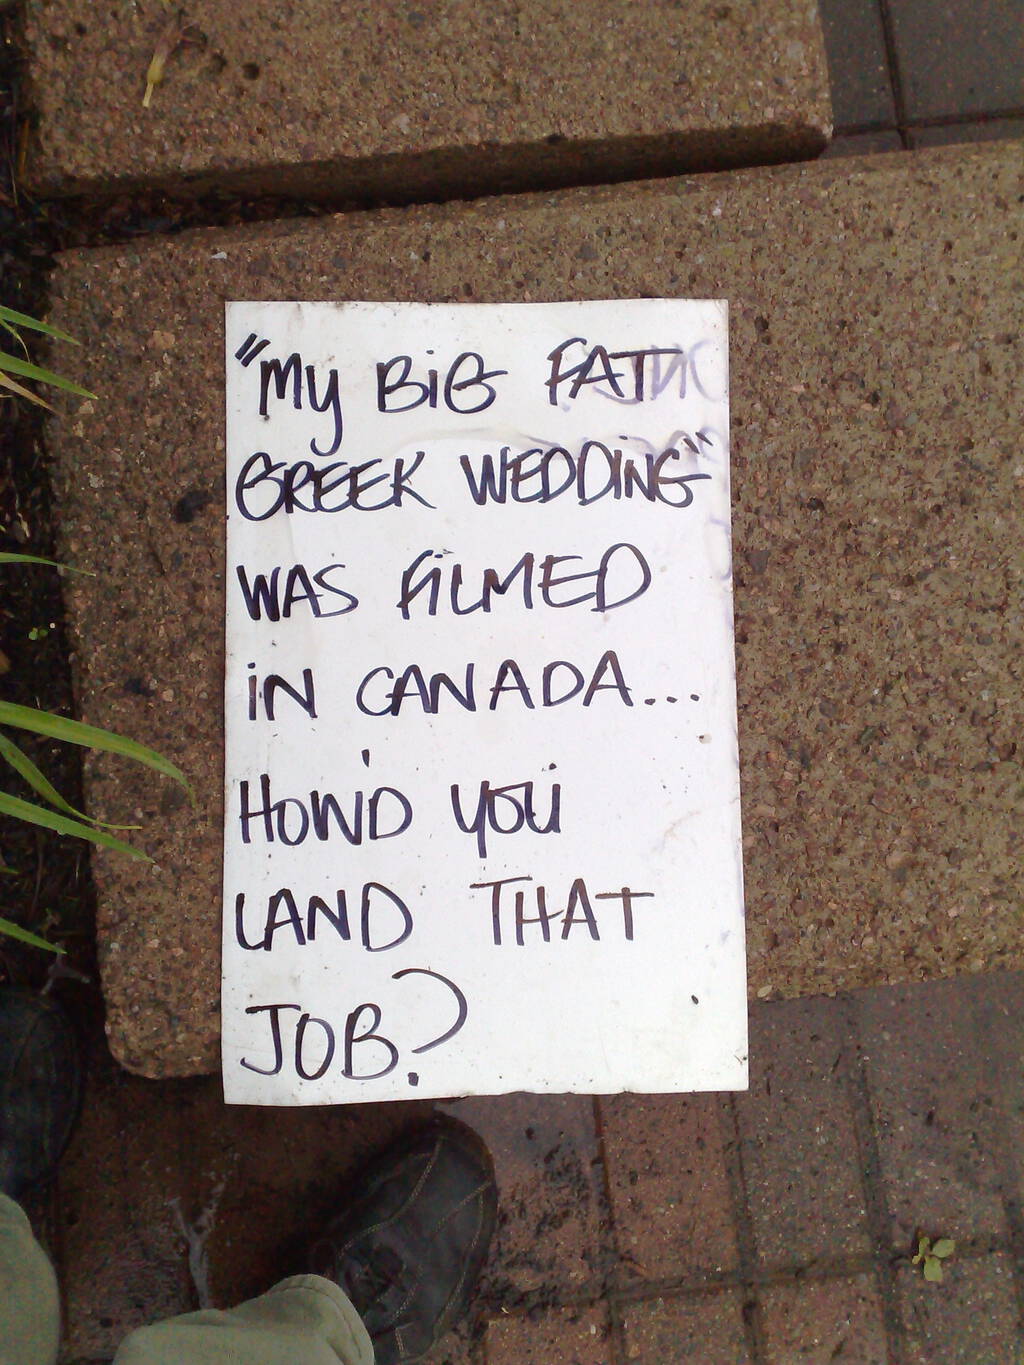 "MY BiG FAT
GREEK WEDDiNG"
WAS FiLMED
iN CANADA...
HOW'D YOU
LAND THAT
JOB?